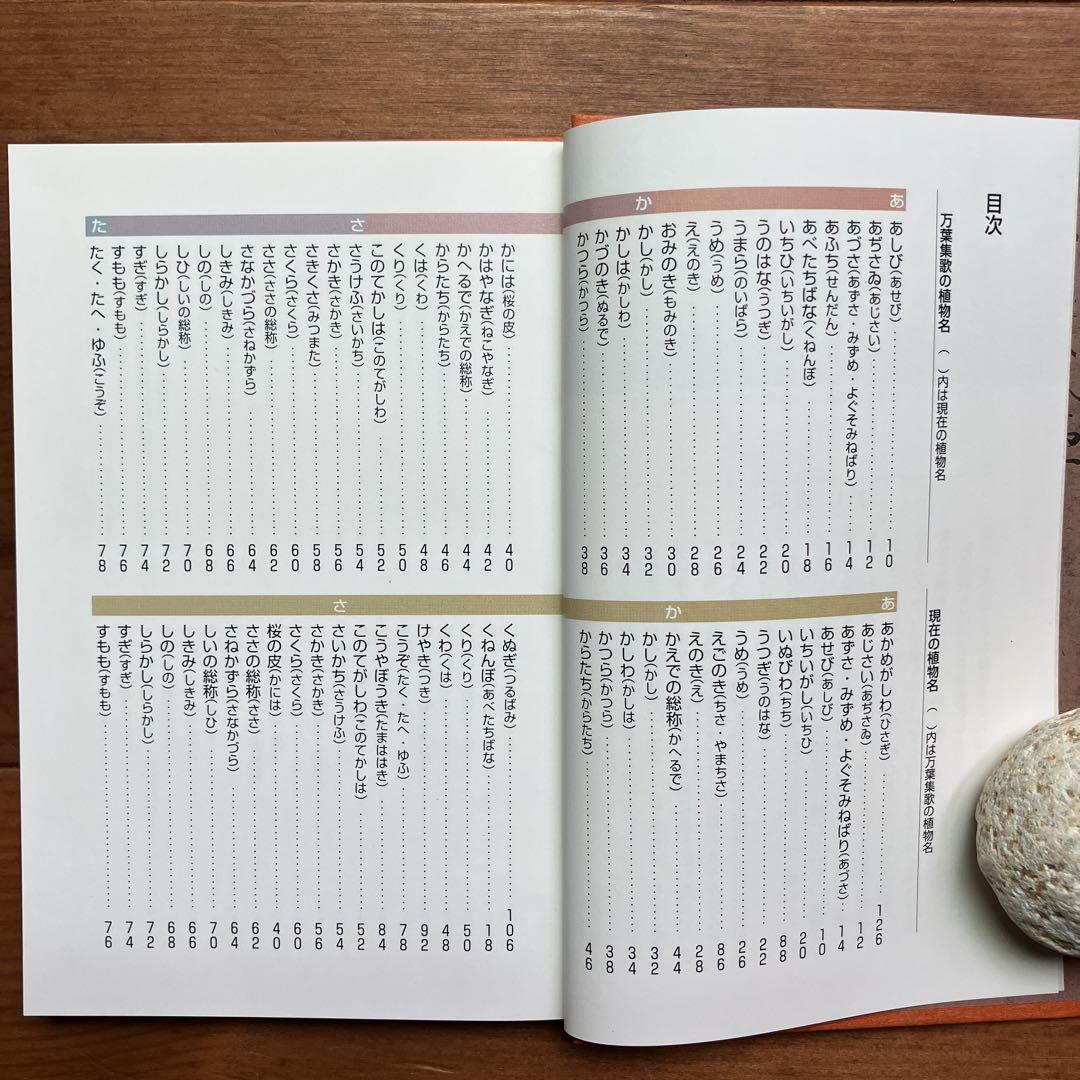 目次
万葉集歌の植物名 ( )内は現在の植物名
あ
あしび(あせび) 10
あぢさゐ(あじさい) 12
あづさ(あずさ・みずめ・よぐそみねばり) 14
あふち(せんだん) 16
あべたちばな(くねんぼ) 18
いちひ(いちいがし) 20
うのはな(うつぎ) 22
うまら(のいばら) 24
うめ(うめ) 26
え(えのき) 28
おみのき(もみのき) 30
か
かし(かし) 32
かしは(かしわ) 34
かづのき(ぬるで) 36
かつら(かつら) 38
かには(桜の皮) 40
かはやなぎ(ねこやなぎ) 42
かへるで(かえでの総称) 44
からたち(からたち) 46
くは(くわ) 48
くり(くり) 50
このてかしは(このてがしわ) 52
さ
さうけふ(さいかち) 54
さかき(さかき) 56
さきくさ(みつまた) 58
さくら(さくら) 60
ささ(ささの総称) 62
さなかづら(さねかずら) 64
しきみ(しきみ) 66
しの(しの) 68
しひ(しいの総称) 70
しらかし(しらかし) 72
すぎ(すぎ) 74
すもも(すもも) 76
た
たく・たへ・ゆふ(こうぞ) 78
現在の植物名 ( )内は万葉集歌の植物名
あ
あかめがしわ(ひさぎ) 126
あじさい(あぢさゐ) 12
あずさ・みずめ・よぐそみねばり(あづさ) 14
あせび(あしび) 10
いちいがし(いちひ) 20
いぬびわ(ちち) 88
うつぎ(うのはな) 22
うめ(うめ) 26
えごのき(ちさ・やまちさ) 86
えのき(え) 28
か
かえでの総称(かへるで) 44
かし(かし) 32
かしわ(かしは) 34
かつら(かつら) 38
からたち(からたち) 46
くぬぎ(つるばみ) 106
くねんぼ(あべたちばな) 18
くり(くり) 50
くわ(くは) 48
けやき(つき) 92
こうぞ(たく・たへ ゆふ) 78
こうやぼうき(たまははき) 84
このてがしわ(このてかしは) 52
さ
さいかち(さうけふ) 54
さかき(さかき) 56
さくら(さくら) 60
桜の皮(かには) 40
ささの総称(ささ) 62
さねかずら(さなかづら) 64
しいの総称(しひ) 70
しきみ(しきみ) 66
しの(しの) 68
しらかし(しらかし) 72
すぎ(すぎ) 74
すもも(すもも) 76